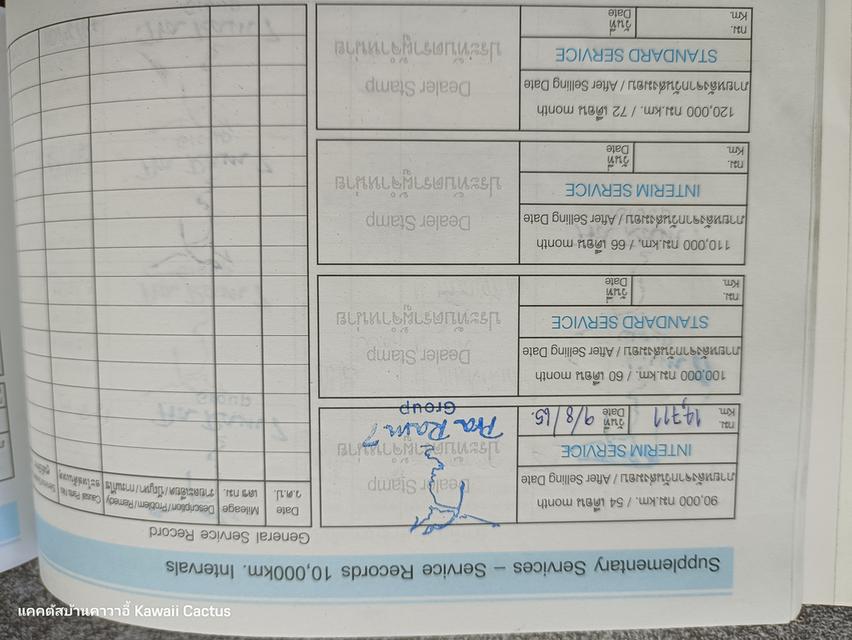 Supplementary Services – Service Records 10,000km. Intervals
90,000 กม.km. / 54 เดือน month
ภายหลังจากวันส่งมอบ / After Selling Date
INTERIM SERVICE
กม. Km. 14,711 วันที่ Date 9/8/65.
Dealer Stamp
ประทับตราผู้จำหน่าย
Pra Ram 7
Group
100,000 กม.km. / 60 เดือน month
ภายหลังจากวันส่งมอบ / After Selling Date
STANDARD SERVICE
กม. Km. วันที่ Date
Dealer Stamp
ประทับตราผู้จำหน่าย
110,000 กม.km. / 66 เดือน month
ภายหลังจากวันส่งมอบ / After Selling Date
INTERIM SERVICE
กม. Km. วันที่ Date
Dealer Stamp
ประทับตราผู้จำหน่าย
120,000 กม.km. / 72 เดือน month
ภายหลังจากวันส่งมอบ / After Selling Date
STANDARD SERVICE
กม. Km. วันที่ Date
Dealer Stamp
ประทับตราผู้จำหน่าย
General Service Record
Date
ว.ด.ป.
Mileage
เลข กม.
Description/Problem/Remedy
รายละเอียด/ปัญหา/การแก้ไข
Causal Parts No.
แคคตัสบ้านคาวาอี้ Kawaii Cactus